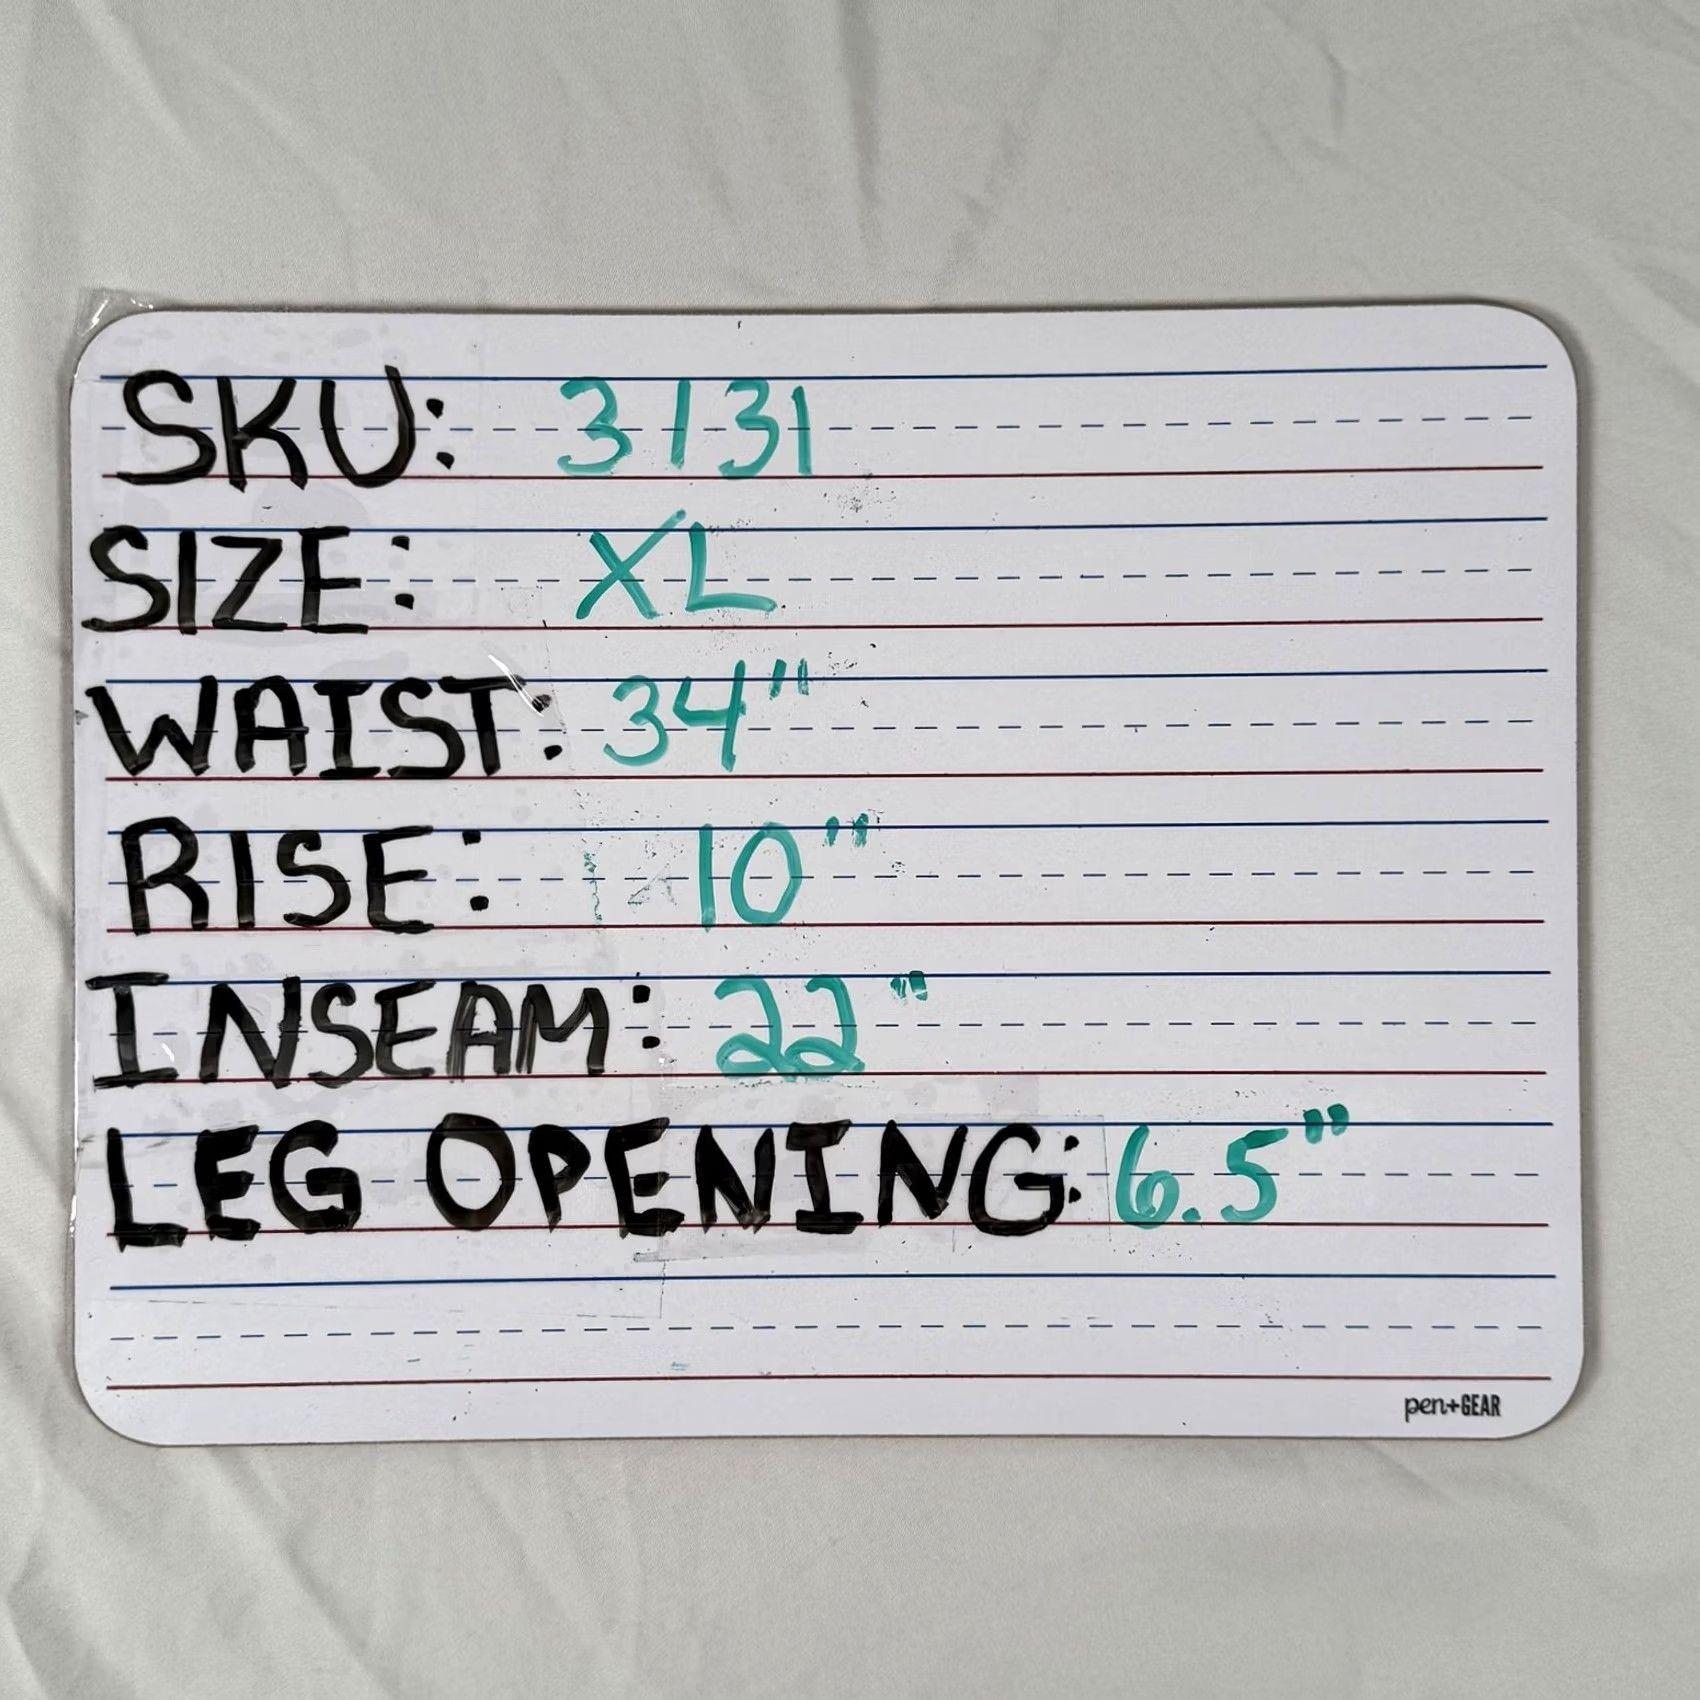 SKU: 3131
SIZE: XL
WAIST: 34"
RISE: 10"
INSEAM: 22"
LEG OPENING: 6.5"
pen+GEAR